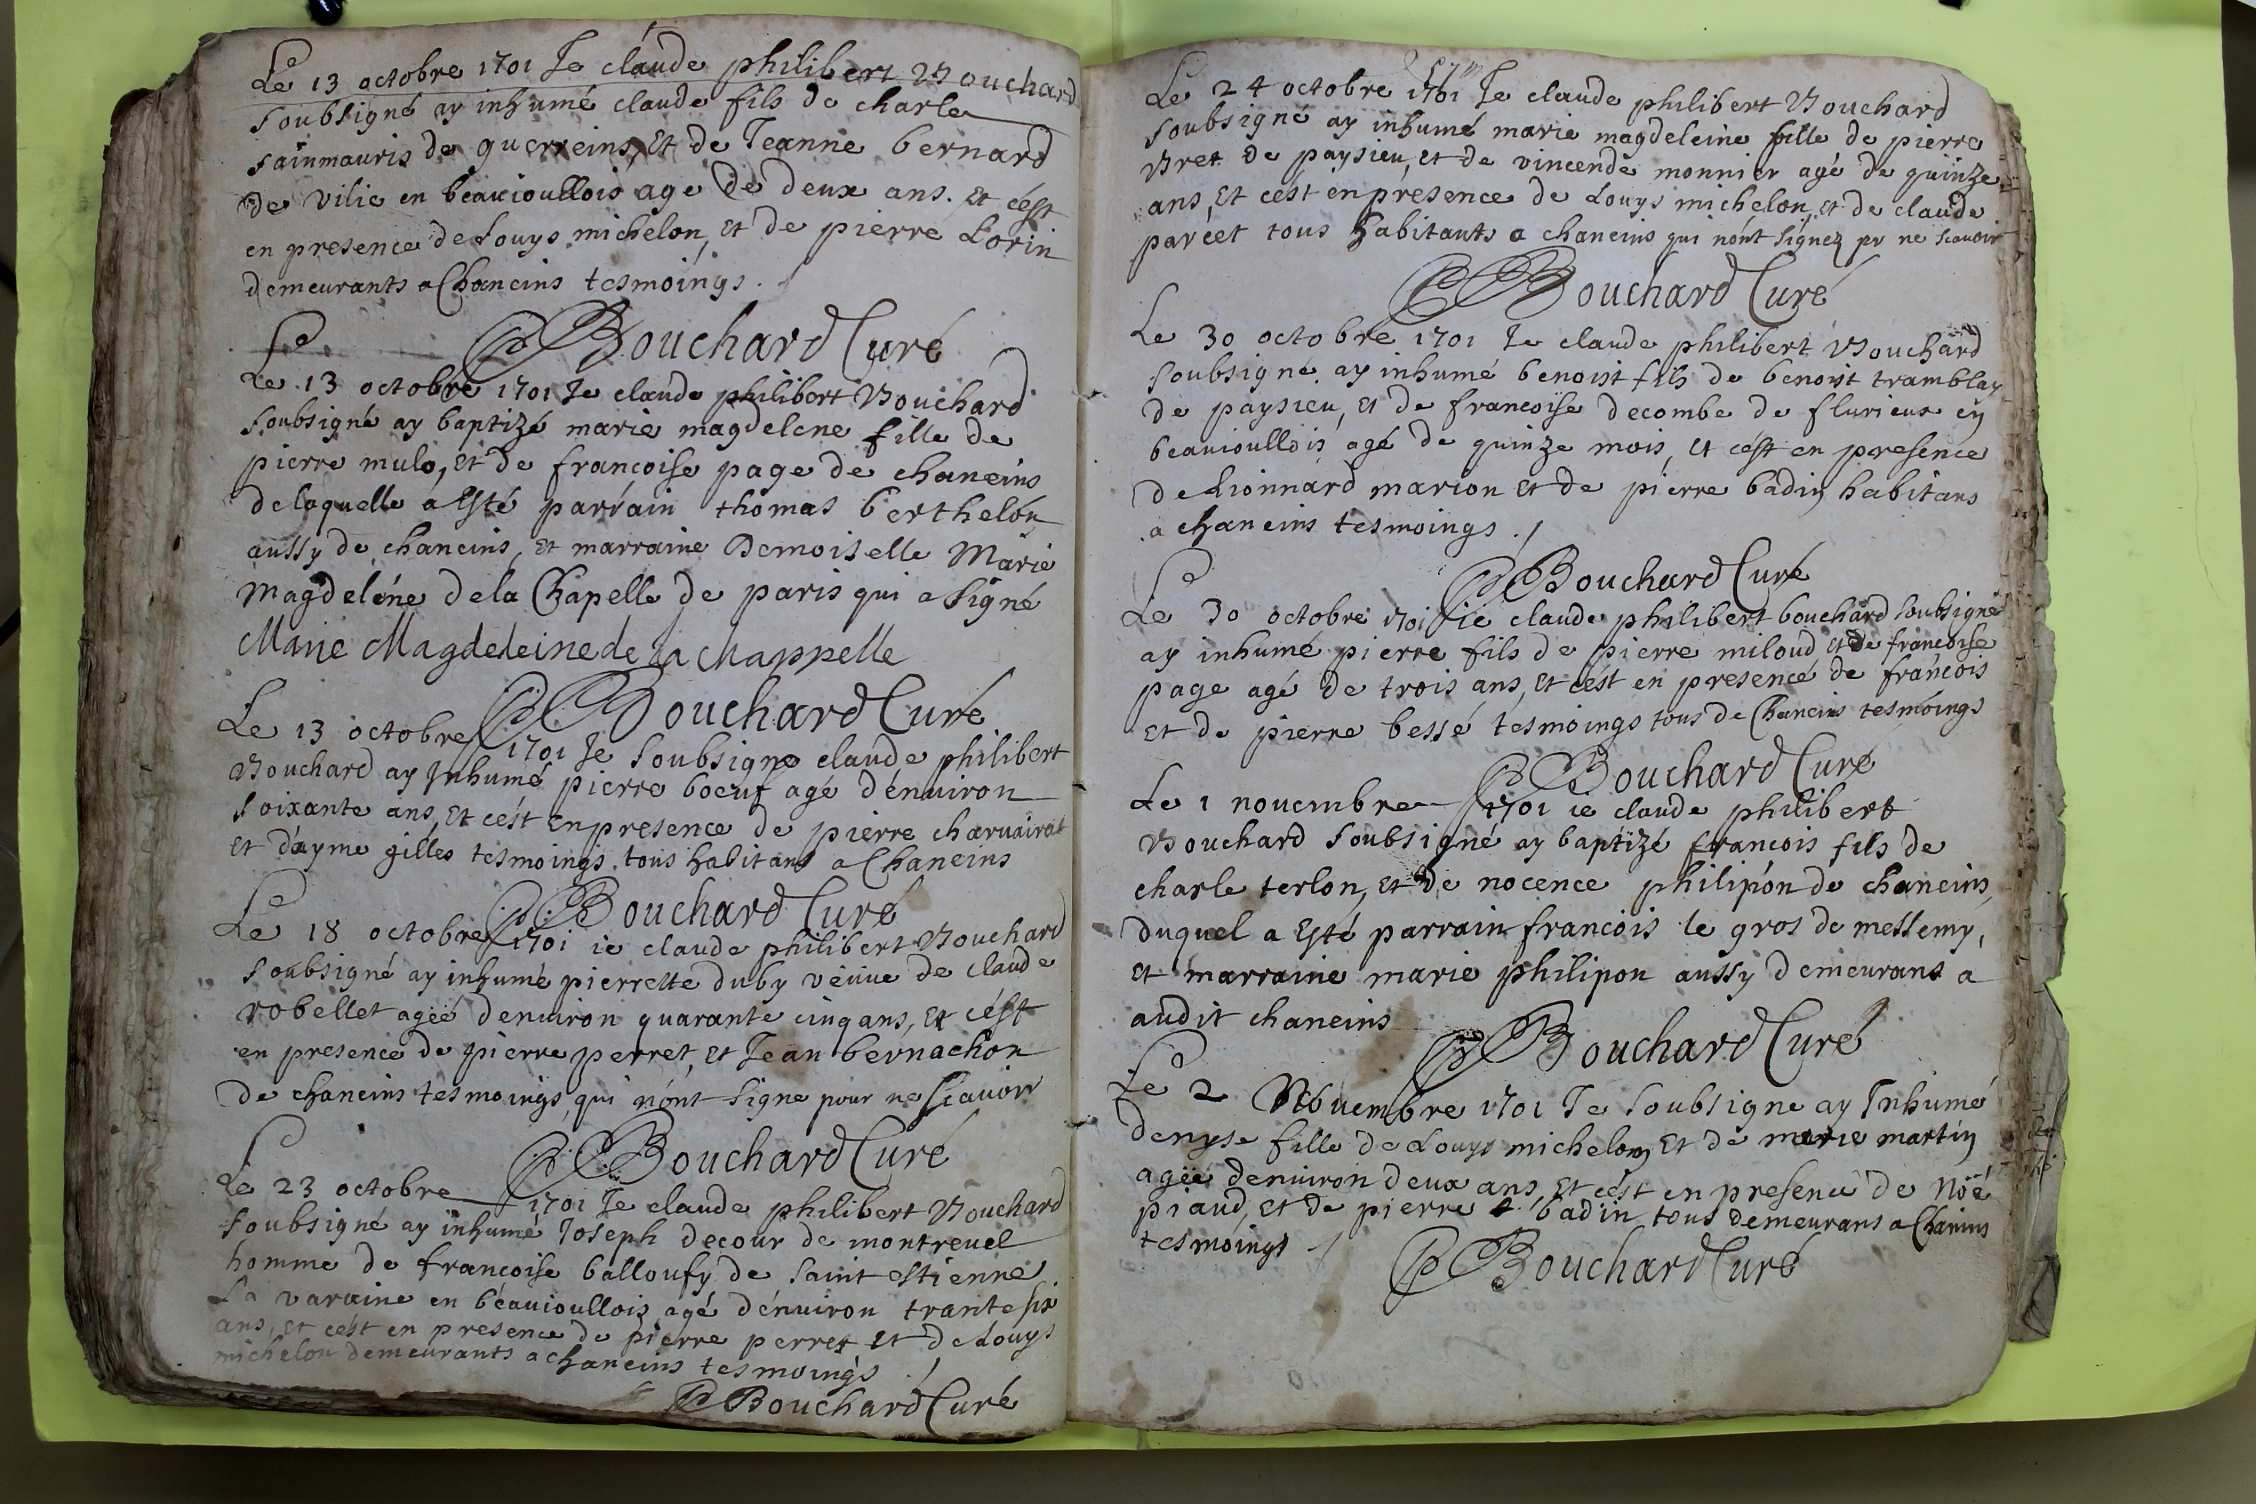 Le 13 octobre 1701 Je claude philibert Bouchard
soubsigné ay inhumé claude fils de charle
sainmauris de guerreins, Et de Jeanne bernard
de vilie en beauioullois age de deux ans. Et c'ést
en presence de Louys michelon, et de pierre Lorin
demeurants a Chaneins tesmoings.
Bouchard Curé
Le
Le 13 octobre 1701 Je claude philibert Bouchard
soubsigné ay baptizé marie magdelene fille de
pierre mulo, Et de francoise page de chaneins
de laquelle a Esté parrain thomas berthelon
aussy de chaneins, et marraine Demoiselle Marie
Magdeléne de la Chapelle de paris qui a signé
Marie Magdeleine de la Chappelle
Bouchard Curé
Le 13 octobre 1701 Je soubsigne claude philibert
Bouchard ay Inhumé pierre boeuf agé dénuiron
soixante ans, Et cést En presence de pierre charuairat
et d'ayme gilles tesmoings tous habitans a Chaneins
Bouchard Curé
Le 18 octobre 1701 ie claude philibert Bouchard
soubsigné ay inhumé pierrette duby véuue de claude
robellet agéé denuiron quarante cinq ans, Et cést
en presence de pierre perret, Et Jean bernachon
de chaneins tesmoings, qui nónt signe pour ne scauoir
Bouchard Curé
Le 23 octobre 1701 Je claude philibert Bouchard
soubsigné ay inhumé Joseph decour de montreuel
homme de françoise balloufy de saint estienne
La varaine en béauioullois agé dénuiron trante six
ans, Et cést en presence de pierre perret Et de Louys
michelon demeurants a chaneins tesmoings
Bouchard Curé
Le 24 octobre 1701 Je claude philibert Bouchard
soubsigné ay inhumé marie magdeleine fille de pierre
Bret de paysieu, et de vincende monnier agé de quinze
ans, Et cést en presence de Louys michelon, et de claude
parcet tous habitants a chaneins qui nónt signez pr ne scauoir
Bouchard Curé
Le 30 octobre 1701 Je claude philibert Bouchard
soubsigné ay inhumé benoist fils de benoist tramblay
de paysieu, Et de francoise decombe de flurieux en
beauioullois agé de quinze mois, Et cést en presence
de Lionnard marion Et de pierre badin habitans
a chaneins tesmoings.
Bouchard Curé
Le 30 octobre 1701 ie claude philibert bouchard soubsigné
ay inhumé pierre fils de pierre miloud Et de francoise
page agé de trois ans, Et cést en presence de francois
Et de pierre bessé tesmoings tous de Chaneins tesmoings
Bouchard Curé
Le 1 nouembre 1701 ie claude philibert
Bouchard soubsigné ay baptizé francois fils de
charle terlon, Et de nocence philipón de chaneins,
duquel a Esté parrain francóis le gros de messemy,
et marraine marie philipon aussy demeurans a
audit chaneins
Bouchard Curé
Le 2 Nouembre 1701 Je soubsigne ay Inhumé
denyse fille de Louys michelon, Et de marie martin
agéé denuiron deux ans, Et cést en presence de Nöé
piaud, Et de pierre badin tous demeurans a Chaneins
tesmoings
Bouchard Curé